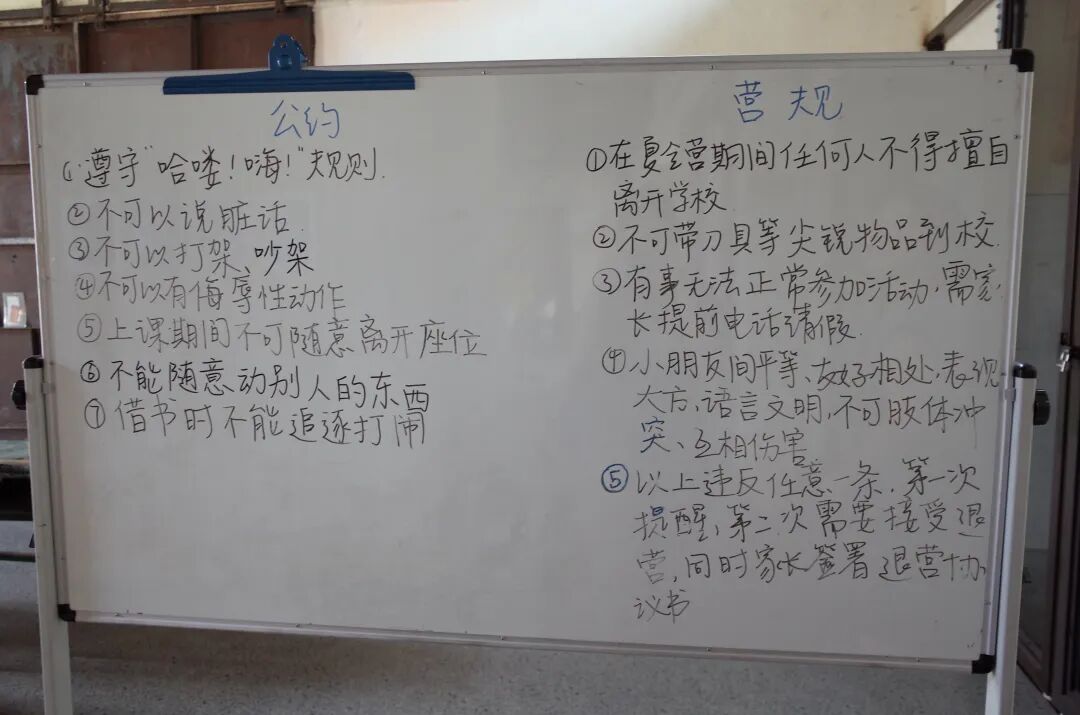 公约
①遵守"哈喽！嗨！"规则.
②不可以说脏话.
③不可以打架、吵架
④不可以有侮辱性动作
⑤上课期间不可随意离开座位
⑥不能随意动别人的东西
⑦借书时不能追逐打闹
营规
①在夏令营期间任何人不得擅自
离开学校.
②不可带刀具等尖锐物品到校.
③有事无法正常参加活动,需家
长提前电话请假.
④小朋友间平等、友好相处,表现
大方,语言文明,不可肢体冲
突、互相伤害
⑤以上违反任意一条,第一次
提醒,第二次需要接受退
营,同时家长签署退营协
议书